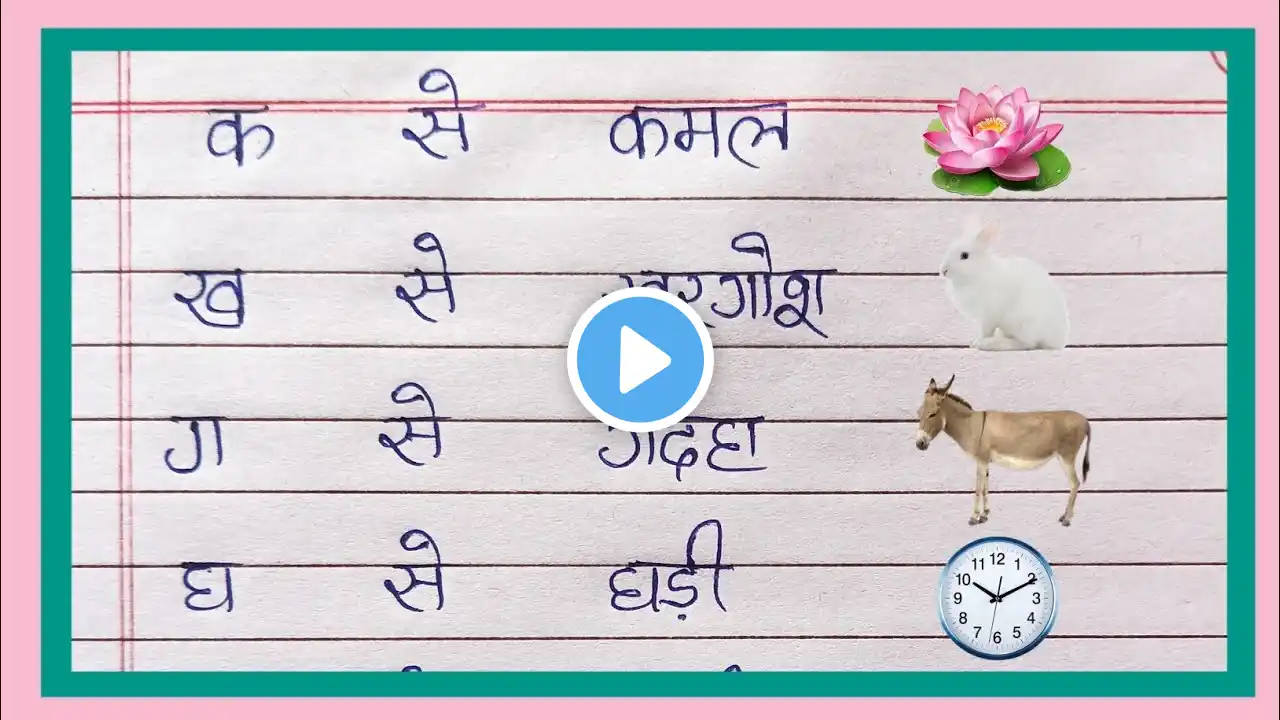 क से कमल
ख से खरगोश
ग से गदहा
घ से घड़ी
12 1 2 3 4 5 6 7 8 9 10 11